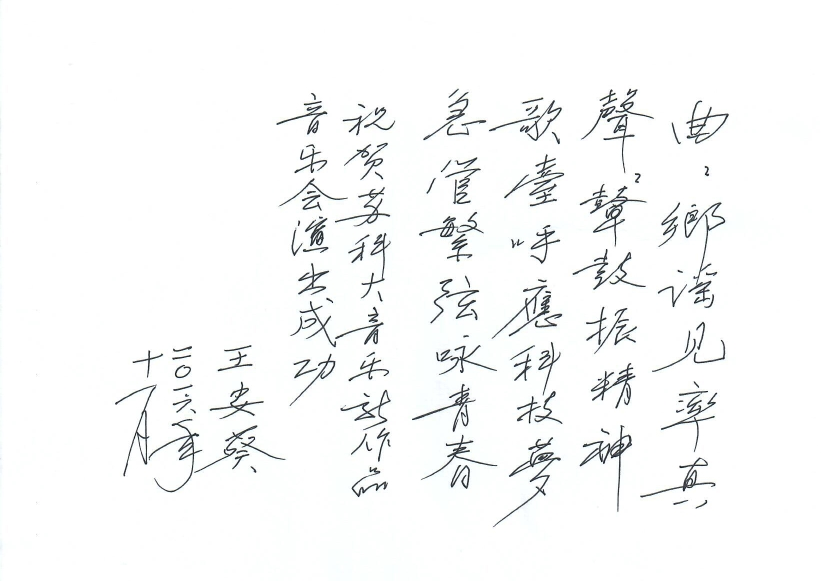 曲〻鄉谣见率真
聲〻鼙鼓振精神
歌臺呼應科技夢
急管繁弦咏青春
祝贺苏科大音乐新作品
音乐会演出成功
王安葵
二〇一六年
十一月